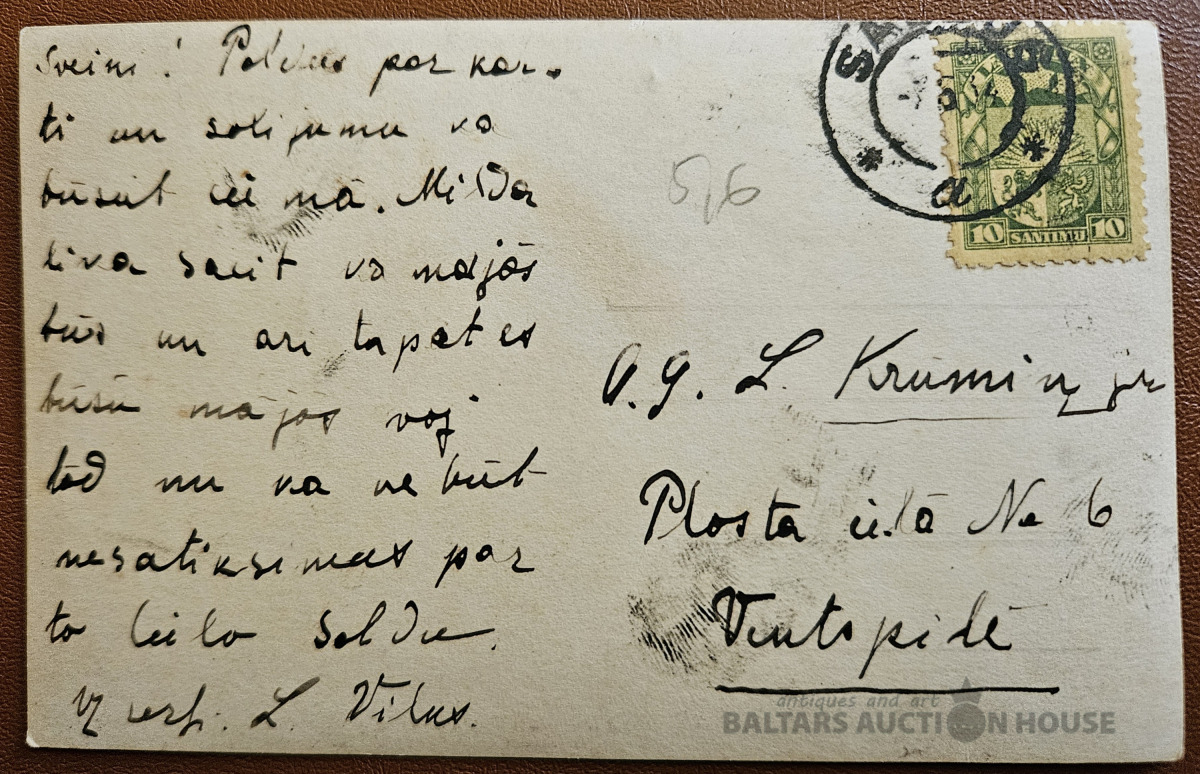 Sveini! Paldies par kar-
ti un solijumu ka
būsiet
Milda
liva sacit ka mājās
būs un ari tapat es
būšu mājās voj
tad nu ka ne būt
nesatiksimas par
to lielo Soldu.
Uz L. Vilus.
5/6
10 SANTIMU 10
a
A. g. L. Krūmiņ
Plosta ielā No 6
Ventspilē
antiques and art
BALTARS AUCTION HOUSE